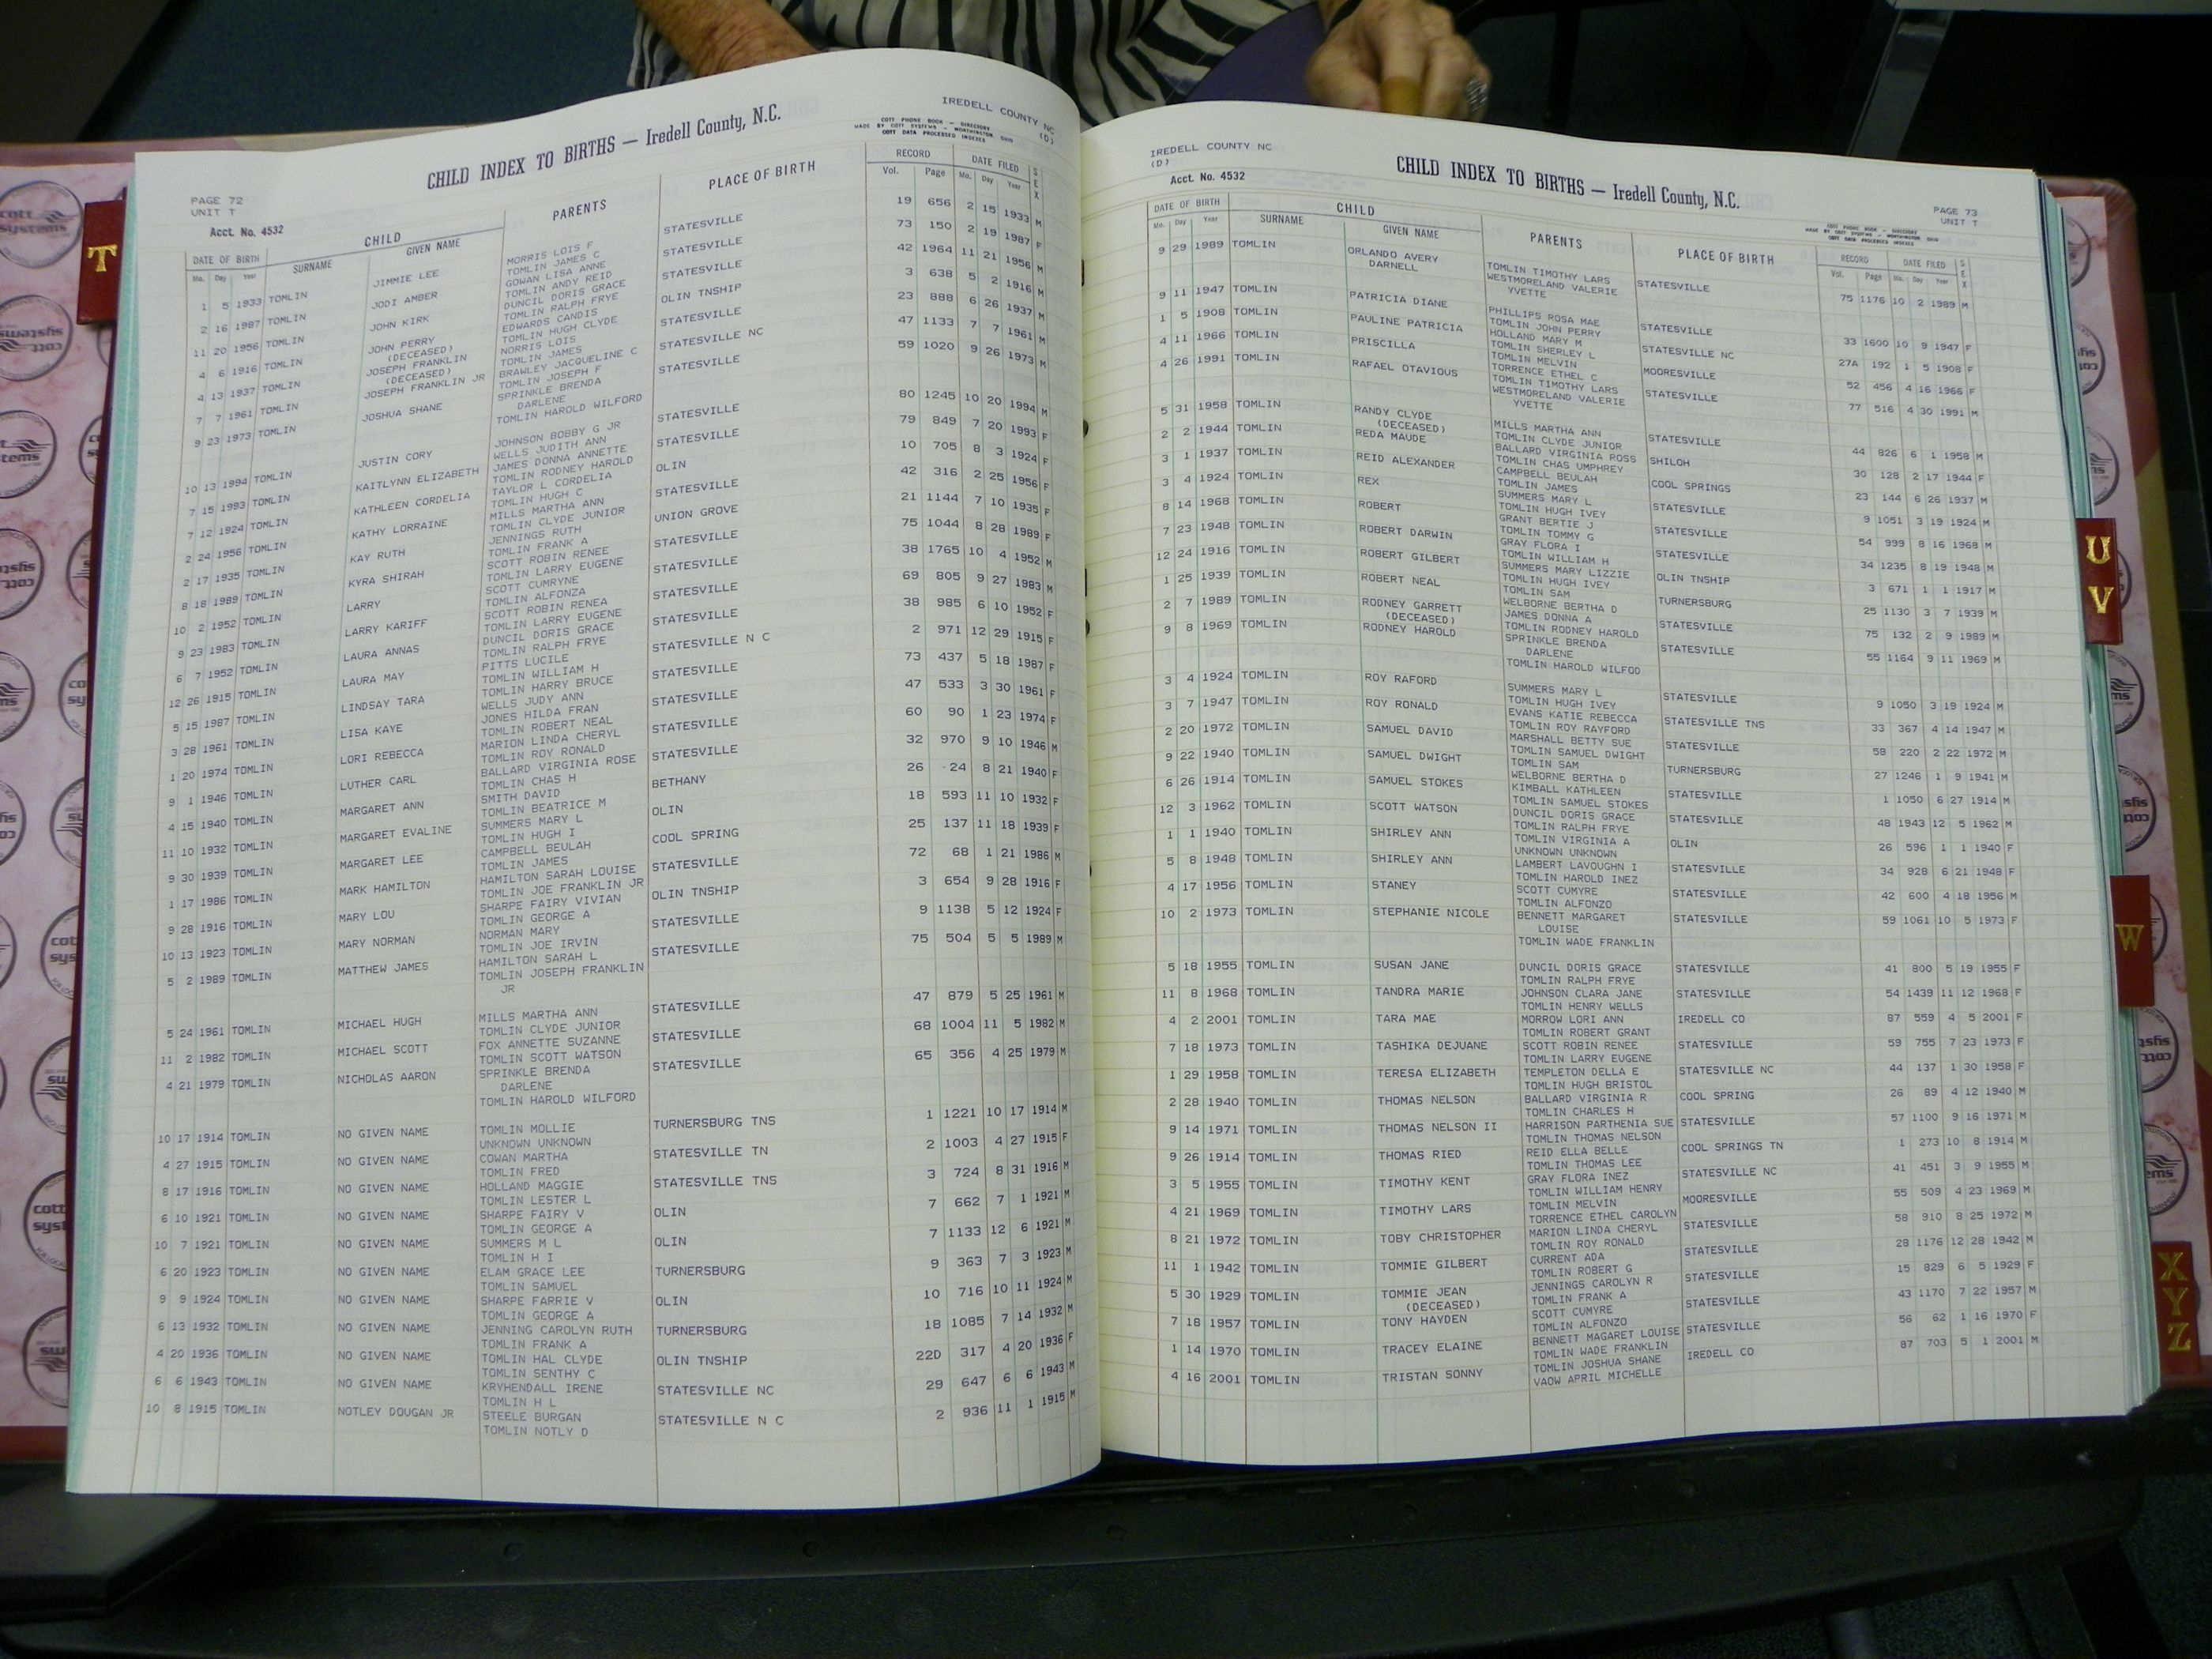 IREDELL COUNTY NC
(D)
CHILD INDEX TO BIRTHS — Iredell County, N.C.
COTT PHONE BOOK - DIRECTORY
MADE BY COTT SYSTEMS - WORTHINGTON, OHIO
COTT DATA PROCESSED INDEXES
PAGE 72
UNIT T
Acct. No. 4532
DATE OF BIRTH CHILD PARENTS PLACE OF BIRTH RECORD DATE FILED SEX
Mo. Day Year SURNAME GIVEN NAME Vol. Page Mo. Day Year
1 5 1933 TOMLIN JIMMIE LEE MORRIS LOIS F STATESVILLE 19 656 2 15 1933 M
TOMLIN JAMES C
2 16 1987 TOMLIN JODI AMBER GOWAN LISA ANNE STATESVILLE 73 150 2 19 1987 F
TOMLIN ANDY REID
11 20 1956 TOMLIN JOHN KIRK DUNCIL DORIS GRACE STATESVILLE 42 1964 11 21 1956 M
TOMLIN RALPH FRYE
4 6 1916 TOMLIN JOHN PERRY EDWARDS CANDIS OLIN TNSHIP 3 638 5 2 1916 M
(DECEASED) TOMLIN HUGH CLYDE
4 13 1937 TOMLIN JOSEPH FRANKLIN NORRIS LOIS STATESVILLE 23 888 6 26 1937 M
(DECEASED) TOMLIN JAMES
7 7 1961 TOMLIN JOSEPH FRANKLIN JR BRAWLEY JACQUELINE C STATESVILLE NC 47 1133 7 7 1961 M
TOMLIN JOSEPH F
9 23 1973 TOMLIN JOSHUA SHANE SPRINKLE BRENDA STATESVILLE 59 1020 9 26 1973 M
DARLENE
TOMLIN HAROLD WILFORD
10 13 1994 TOMLIN JUSTIN CORY JOHNSON BOBBY G JR STATESVILLE 80 1245 10 20 1994 M
WELLS JUDITH ANN
7 15 1993 TOMLIN KAITLYNN ELIZABETH JAMES DONNA ANNETTE STATESVILLE 79 849 7 20 1993 F
TOMLIN RODNEY HAROLD
7 12 1924 TOMLIN KATHLEEN CORDELIA TAYLOR L CORDELIA OLIN 10 705 8 3 1924 F
TOMLIN HUGH C
2 24 1956 TOMLIN KATHY LORRAINE MILLS MARTHA ANN STATESVILLE 42 316 2 25 1956 F
TOMLIN CLYDE JUNIOR
2 17 1935 TOMLIN KAY RUTH JENNINGS RUTH UNION GROVE 21 1144 7 10 1935 F
TOMLIN FRANK A
8 18 1989 TOMLIN KYRA SHIRAH SCOTT ROBIN RENEE STATESVILLE 75 1044 8 28 1989 F
TOMLIN LARRY EUGENE
10 2 1952 TOMLIN LARRY SCOTT CUMRYNE STATESVILLE 38 1765 10 4 1952 M
TOMLIN ALFONZA
9 23 1983 TOMLIN LARRY KARIFF SCOTT ROBIN RENEA STATESVILLE 69 805 9 27 1983 M
TOMLIN LARRY EUGENE
6 7 1952 TOMLIN LAURA ANNAS DUNCIL DORIS GRACE STATESVILLE 38 985 6 10 1952 F
TOMLIN RALPH FRYE
12 26 1915 TOMLIN LAURA MAY PITTS LUCILE STATESVILLE N C 2 971 12 29 1915 F
TOMLIN WILLIAM H
5 15 1987 TOMLIN LINDSAY TARA TOMLIN HARRY BRUCE STATESVILLE 73 437 5 18 1987 F
WELLS JUDY ANN
3 28 1961 TOMLIN LISA KAYE JONES HILDA FRAN STATESVILLE 47 533 3 30 1961 F
TOMLIN ROBERT NEAL
1 20 1974 TOMLIN LORI REBECCA MARION LINDA CHERYL STATESVILLE 60 90 1 23 1974 F
TOMLIN ROY RONALD
9 1 1946 TOMLIN LUTHER CARL BALLARD VIRGINIA ROSE STATESVILLE 32 970 9 10 1946 M
TOMLIN CHAS H
4 15 1940 TOMLIN MARGARET ANN SMITH DAVID BETHANY 26 24 8 21 1940 F
TOMLIN BEATRICE M
11 10 1932 TOMLIN MARGARET EVALINE SUMMERS MARY L OLIN 18 593 11 10 1932 F
TOMLIN HUGH I
9 30 1939 TOMLIN MARGARET LEE CAMPBELL BEULAH COOL SPRING 25 137 11 18 1939 F
TOMLIN JAMES
1 17 1986 TOMLIN MARK HAMILTON HAMILTON SARAH LOUISE STATESVILLE 72 68 1 21 1986 M
TOMLIN JOE FRANKLIN JR
9 28 1916 TOMLIN MARY LOU SHARPE FAIRY VIVIAN OLIN TNSHIP 3 654 9 28 1916 F
TOMLIN GEORGE A
10 13 1923 TOMLIN MARY NORMAN NORMAN MARY STATESVILLE 9 1138 5 12 1924 F
TOMLIN JOE IRVIN
5 2 1989 TOMLIN MATTHEW JAMES HAMILTON SARAH L STATESVILLE 75 504 5 5 1989 M
TOMLIN JOSEPH FRANKLIN
JR
5 24 1961 TOMLIN MICHAEL HUGH MILLS MARTHA ANN STATESVILLE 47 879 5 25 1961 M
TOMLIN CLYDE JUNIOR
11 2 1982 TOMLIN MICHAEL SCOTT FOX ANNETTE SUZANNE STATESVILLE 68 1004 11 5 1982 M
TOMLIN SCOTT WATSON
4 21 1979 TOMLIN NICHOLAS AARON SPRINKLE BRENDA STATESVILLE 65 356 4 25 1979 M
DARLENE
TOMLIN HAROLD WILFORD
10 17 1914 TOMLIN NO GIVEN NAME TOMLIN MOLLIE TURNERSBURG TNS 1 1221 10 17 1914 M
UNKNOWN UNKNOWN
4 27 1915 TOMLIN NO GIVEN NAME COWAN MARTHA STATESVILLE TN 2 1003 4 27 1915 F
TOMLIN FRED
8 17 1916 TOMLIN NO GIVEN NAME HOLLAND MAGGIE STATESVILLE TNS 3 724 8 31 1916 M
TOMLIN LESTER L
6 10 1921 TOMLIN NO GIVEN NAME SHARPE FAIRY V OLIN 7 662 7 1 1921 M
TOMLIN GEORGE A
10 7 1921 TOMLIN NO GIVEN NAME SUMMERS M L OLIN 7 1133 12 6 1921 M
TOMLIN H I
6 20 1923 TOMLIN NO GIVEN NAME ELAM GRACE LEE TURNERSBURG 9 363 7 3 1923 M
TOMLIN SAMUEL
9 9 1924 TOMLIN NO GIVEN NAME SHARPE FARRIE V OLIN 10 716 10 11 1924 M
TOMLIN GEORGE A
6 13 1932 TOMLIN NO GIVEN NAME JENNING CAROLYN RUTH TURNERSBURG 18 1085 7 14 1932 M
TOMLIN FRANK A
4 20 1936 TOMLIN NO GIVEN NAME TOMLIN HAL CLYDE OLIN TNSHIP 22D 317 4 20 1936 F
TOMLIN SENTHY C
6 6 1943 TOMLIN NO GIVEN NAME KRYHENDALL IRENE STATESVILLE NC 29 647 6 6 1943 M
TOMLIN H L
10 8 1915 TOMLIN NOTLEY DOUGAN JR STEELE BURGAN STATESVILLE N C 2 936 11 1 1915 M
TOMLIN NOTLY D
IREDELL COUNTY NC
(D)
Acct. No. 4532
CHILD INDEX TO BIRTHS — Iredell County, N.C.
PAGE 73
UNIT T
COTT PHONE BOOK - DIRECTORY
MADE BY COTT SYSTEMS - WORTHINGTON, OHIO
COTT DATA PROCESSED INDEXES
DATE OF BIRTH CHILD PARENTS PLACE OF BIRTH RECORD DATE FILED SEX
Mo. Day Year SURNAME GIVEN NAME Vol. Page Mo. Day Year
9 29 1989 TOMLIN ORLANDO AVERY TOMLIN TIMOTHY LARS STATESVILLE 75 1176 10 2 1989 M
DARNELL WESTMORELAND VALERIE
YVETTE
9 11 1947 TOMLIN PATRICIA DIANE PHILLIPS ROSA MAE STATESVILLE 33 1600 10 9 1947 F
TOMLIN JOHN PERRY
1 5 1908 TOMLIN PAULINE PATRICIA HOLLAND MARY M STATESVILLE NC 27A 192 1 5 1908 F
TOMLIN SHERLEY L
4 11 1966 TOMLIN PRISCILLA TOMLIN MELVIN MOORESVILLE 52 456 4 16 1966 F
TORRENCE ETHEL C
4 26 1991 TOMLIN RAFAEL OTAVIOUS TOMLIN TIMOTHY LARS STATESVILLE 77 516 4 30 1991 M
WESTMORELAND VALERIE
YVETTE
5 31 1958 TOMLIN RANDY CLYDE MILLS MARTHA ANN STATESVILLE 44 826 6 1 1958 M
(DECEASED) TOMLIN CLYDE JUNIOR
2 2 1944 TOMLIN REDA MAUDE BALLARD VIRGINIA ROSS SHILOH 30 128 2 17 1944 F
TOMLIN CHAS UMPHREY
3 1 1937 TOMLIN REID ALEXANDER CAMPBELL BEULAH COOL SPRINGS 23 144 6 26 1937 M
TOMLIN JAMES
3 4 1924 TOMLIN REX SUMMERS MARY L 9 1051 3 19 1924 M
TOMLIN HUGH IVEY
8 14 1968 TOMLIN ROBERT GRANT BERTIE J STATESVILLE 54 999 8 16 1968 M
TOMLIN TOMMY G
7 23 1948 TOMLIN ROBERT DARWIN GRAY FLORA I STATESVILLE 34 1235 8 19 1948 M
TOMLIN WILLIAM H
12 24 1916 TOMLIN ROBERT GILBERT SUMMERS MARY LIZZIE OLIN TNSHIP 3 671 1 1 1917 M
TOMLIN HUGH IVEY
1 25 1939 TOMLIN ROBERT NEAL TOMLIN SAM TURNERSBURG 25 1130 3 7 1939 M
WELBORNE BERTHA D
2 7 1989 TOMLIN RODNEY GARRETT JAMES DONNA A STATESVILLE 75 132 2 9 1989 M
(DECEASED) TOMLIN RODNEY HAROLD
9 8 1969 TOMLIN RODNEY HAROLD SPRINKLE BRENDA STATESVILLE 55 1164 9 11 1969 M
DARLENE
TOMLIN HAROLD WILFOD
3 4 1924 TOMLIN ROY RAFORD SUMMERS MARY L STATESVILLE 9 1050 3 19 1924 M
TOMLIN HUGH IVEY
3 7 1947 TOMLIN ROY RONALD EVANS KATIE REBECCA STATESVILLE TNS 33 367 4 14 1947 M
TOMLIN ROY RAYFORD
2 20 1972 TOMLIN SAMUEL DAVID MARSHALL BETTY SUE STATESVILLE 58 220 2 22 1972 M
TOMLIN SAMUEL DWIGHT
9 22 1940 TOMLIN SAMUEL DWIGHT TOMLIN SAM TURNERSBURG 27 1246 1 9 1941 M
WELBORNE BERTHA D
6 26 1914 TOMLIN SAMUEL STOKES KIMBALL KATHLEEN STATESVILLE 1 1050 6 27 1914 M
TOMLIN SAMUEL STOKES
12 3 1962 TOMLIN SCOTT WATSON DUNCIL DORIS GRACE STATESVILLE 48 1943 12 5 1962 M
TOMLIN RALPH FRYE
1 1 1940 TOMLIN SHIRLEY ANN TOMLIN VIRGINIA A OLIN 26 596 1 1 1940 F
UNKNOWN UNKNOWN
5 8 1948 TOMLIN SHIRLEY ANN LAMBERT LAVOUGHN I STATESVILLE 34 928 6 21 1948 F
TOMLIN HAROLD INEZ
4 17 1956 TOMLIN STANEY SCOTT CUMYRE STATESVILLE 42 600 4 18 1956 M
TOMLIN ALFONZO
10 2 1973 TOMLIN STEPHANIE NICOLE BENNETT MARGARET STATESVILLE 59 1061 10 5 1973 F
LOUISE
TOMLIN WADE FRANKLIN
5 18 1955 TOMLIN SUSAN JANE DUNCIL DORIS GRACE STATESVILLE 41 800 5 19 1955 F
TOMLIN RALPH FRYE
11 8 1968 TOMLIN TANDRA MARIE JOHNSON CLARA JANE STATESVILLE 54 1439 11 12 1968 F
TOMLIN HENRY WELLS
4 2 2001 TOMLIN TARA MAE MORROW LORI ANN IREDELL CO 87 559 4 5 2001 F
TOMLIN ROBERT GRANT
7 18 1973 TOMLIN TASHIKA DEJUANE SCOTT ROBIN RENEE STATESVILLE 59 755 7 23 1973 F
TOMLIN LARRY EUGENE
1 29 1958 TOMLIN TERESA ELIZABETH TEMPLETON DELLA E STATESVILLE NC 44 137 1 30 1958 F
TOMLIN HUGH BRISTOL
2 28 1940 TOMLIN THOMAS NELSON BALLARD VIRGINIA R COOL SPRING 26 89 4 12 1940 M
TOMLIN CHARLES H
9 14 1971 TOMLIN THOMAS NELSON II HARRISON PARTHENIA SUE STATESVILLE 57 1100 9 16 1971 M
TOMLIN THOMAS NELSON
9 26 1914 TOMLIN THOMAS RIED REID ELLA BELLE COOL SPRINGS TN 1 273 10 8 1914 M
TOMLIN THOMAS LEE
3 5 1955 TOMLIN TIMOTHY KENT GRAY FLORA INEZ STATESVILLE NC 41 451 3 9 1955 M
TOMLIN WILLIAM HENRY
4 21 1969 TOMLIN TIMOTHY LARS TOMLIN MELVIN MOORESVILLE 55 509 4 23 1969 M
TORRENCE ETHEL CAROLYN
8 21 1972 TOMLIN TOBY CHRISTOPHER MARION LINDA CHERYL STATESVILLE 58 910 8 25 1972 M
TOMLIN ROY RONALD
11 1 1942 TOMLIN TOMMIE GILBERT CURRENT ADA STATESVILLE 28 1176 12 28 1942 M
TOMLIN ROBERT G
5 30 1929 TOMLIN TOMMIE JEAN JENNINGS CAROLYN R STATESVILLE 15 829 6 5 1929 F
(DECEASED) TOMLIN FRANK A
7 18 1957 TOMLIN TONY HAYDEN SCOTT CUMYRE STATESVILLE 43 1170 7 22 1957 M
TOMLIN ALFONZO
1 14 1970 TOMLIN TRACEY ELAINE BENNETT MAGARET LOUISE STATESVILLE 56 62 1 16 1970 F
TOMLIN WADE FRANKLIN
4 16 2001 TOMLIN TRISTAN SONNY TOMLIN JOSHUA SHANE IREDELL CO 87 703 5 1 2001 M
VAOW APRIL MICHELLE
T
U
V
W
X
Y
Z
cott
systems